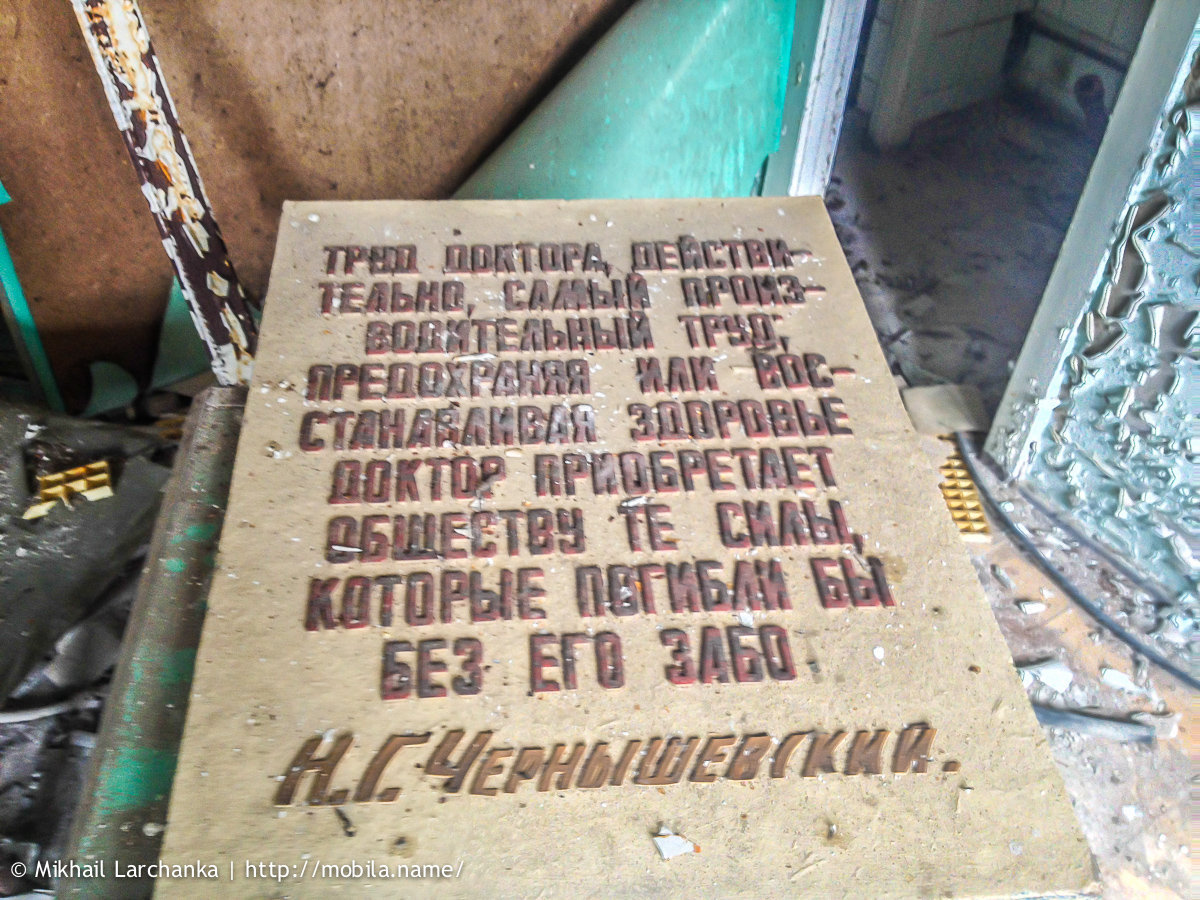 ТРУД ДОКТОРА, ДЕЙСТВИ-
ТЕЛЬНО, САМЫЙ ПРОИЗ-
ВОДИТЕЛЬНЫЙ ТРУД;
ПРЕДОХРАНЯЯ ИЛИ ВОС-
СТАНАВЛИВАЯ ЗДОРОВЬЕ
ДОКТОР ПРИОБРЕТАЕТ
ОБЩЕСТВУ ТЕ СИЛЫ,
КОТОРЫЕ ПОГИБЛИ БЫ
БЕЗ ЕГО ЗАБО
Н.Г. ЧЕРНЫШЕВСКИЙ.
© Mikhail Larchanka | http://mobila.name/